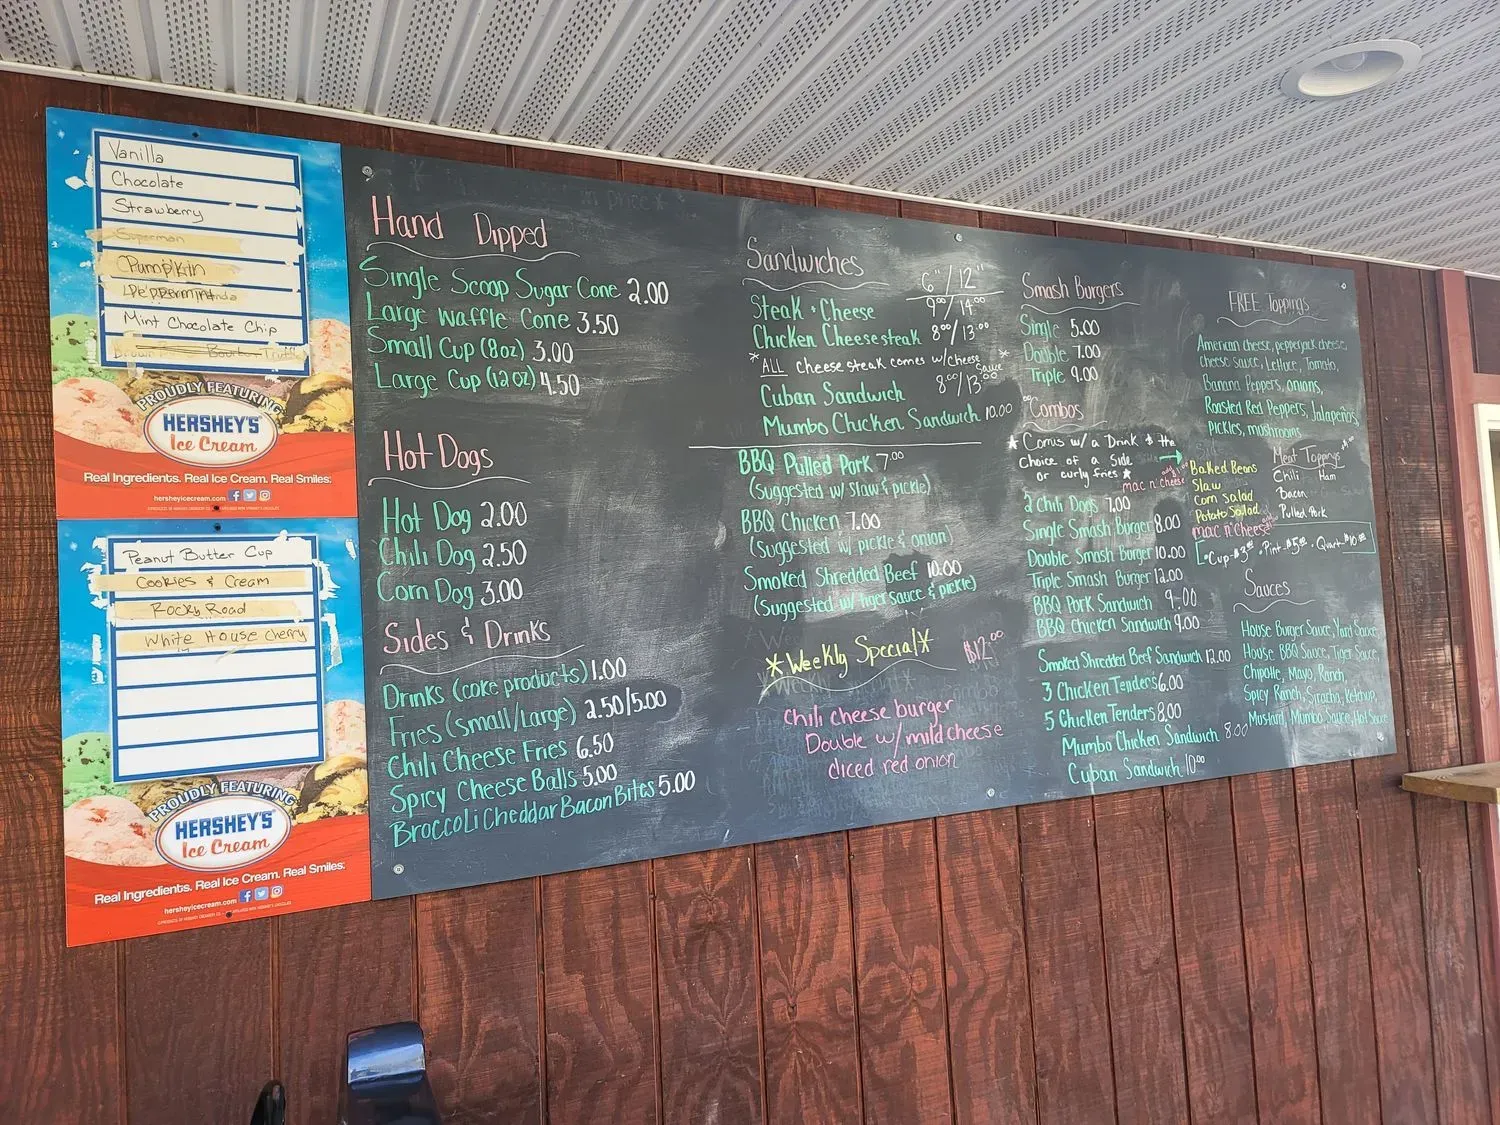 Vanilla
Chocolate
Strawberry
Superman
Pumpkin
Peppermint
Mint Chocolate Chip
Bourbon Truffle
PROUDLY FEATURING
HERSHEY'S
Ice Cream
Real Ingredients. Real Ice Cream. Real Smiles:
hersheyicecream.com
Peanut Butter Cup
Cookies & Cream
Rocky Road
White House Cherry
PROUDLY FEATURING
HERSHEY'S
Ice Cream
Real Ingredients. Real Ice Cream. Real Smiles:
hersheyicecream.com
Hand Dipped
Single Scoop Sugar Cone 2.00
Large Waffle Cone 3.50
Small Cup (8oz) 3.00
Large Cup (12oz) 4.50
Hot Dogs
Hot Dog 2.00
Chili Dog 2.50
Corn Dog 3.00
Sides & Drinks
Drinks (coke products) 1.00
Fries (small/Large) 2.50/5.00
Chili Cheese Fries 6.50
Spicy Cheese Balls 5.00
Broccoli Cheddar Bacon Bites 5.00
Sandwiches 6"/12"
Steak & Cheese 9.00/14.00
Chicken Cheesesteak 8.00/13.00
*ALL cheesesteak comes w/cheese sauce *
Cuban Sandwich 8.00/13.00
Mumbo Chicken Sandwich 10.00
BBQ Pulled Pork 7.00
(Suggested w/ Slaw & pickle)
BBQ Chicken 7.00
(Suggested w/ pickle & onion)
Smoked Shredded Beef 10.00
(Suggested w/ tiger sauce & pickle)
*Weekly Special* $12.00
Chili cheese burger
Double w/ mild cheese
diced red onion
Smash Burgers
Single 5.00
Double 7.00
Triple 9.00
Combos
* Comes w/ a Drink & the
Choice of a Side
or curly fries *
mac n' cheese add $1.00
2 Chili Dogs 7.00
Single Smash Burger 8.00
Double Smash Burger 10.00
Triple Smash Burger 12.00
BBQ Pork Sandwich 9.00
BBQ Chicken Sandwich 9.00
Smoked Shredded Beef Sandwich 12.00
3 Chicken Tenders 6.00
5 Chicken Tenders 8.00
Mumbo Chicken Sandwich 8.00
Cuban Sandwich 10.00
FREE Toppings
American cheese, pepperjack cheese,
cheese sauce, Lettuce, Tomato,
Banana Peppers, onions,
Roasted Red Peppers, Jalapeños,
pickles, mushrooms
Sides
Baked Beans
Slaw
Corn Salad
Potato Salad
mac n' Cheese
Meat Toppings
Chili Ham
Bacon
Pulled Pork
• Cup-$3.00 • Pint-$5.00 • Quart-$10.00
Sauces
House Burger Sauce, Yard Sauce,
House BBQ Sauce, Tiger Sauce,
Chipotle, Mayo, Ranch,
Spicy Ranch, Siracha, Ketchup,
Mustard, Mumbo Sauce, Hot Sauce